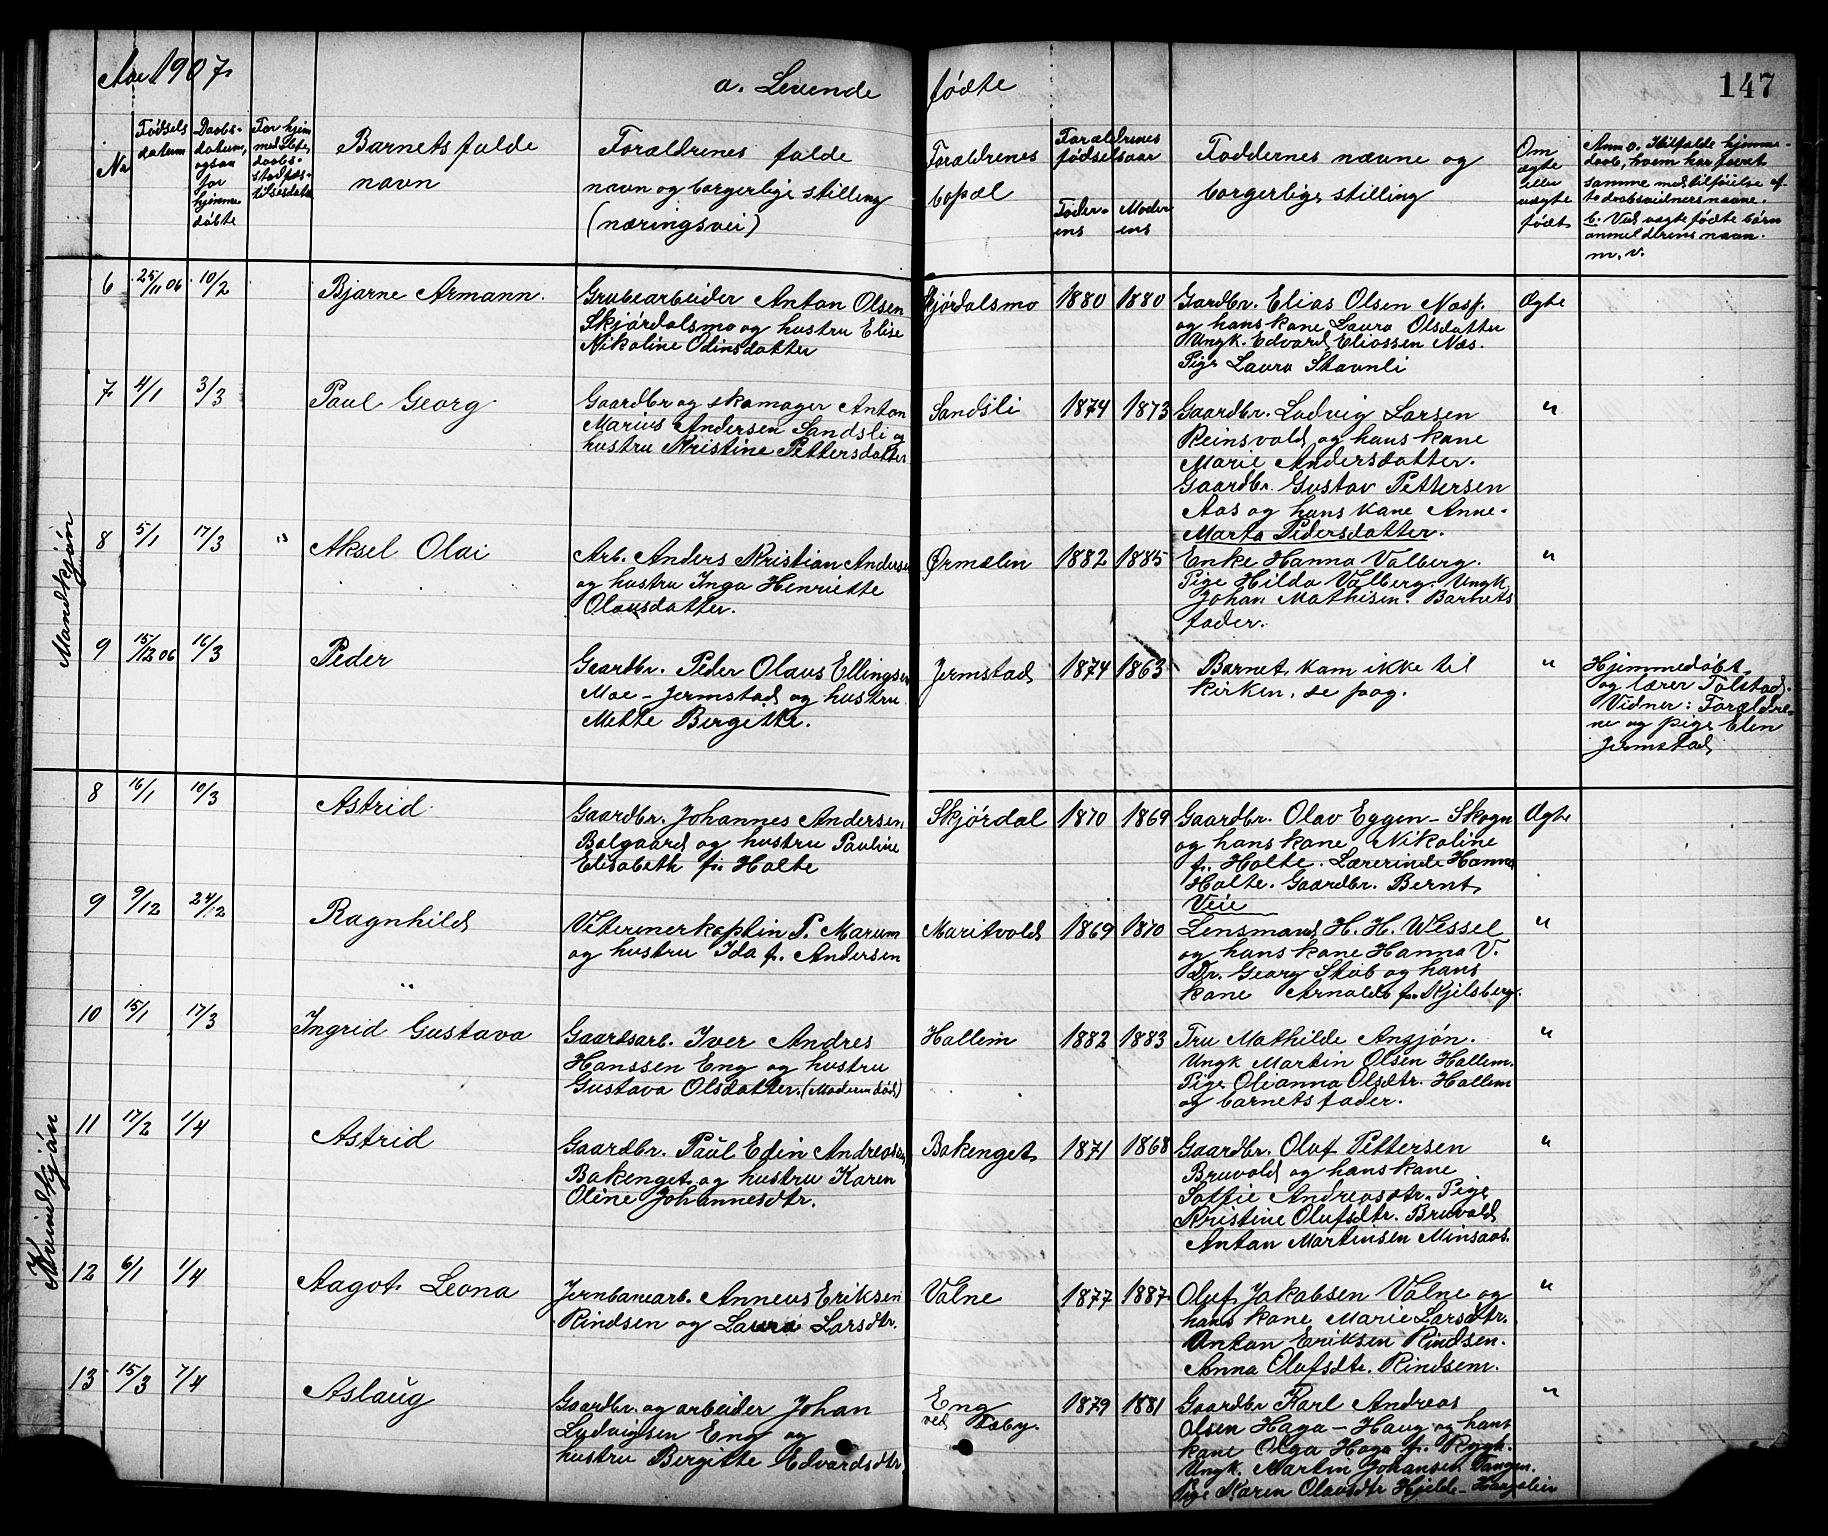 Aar 1907.
a. Levende fødte
147
No
Fødsels datum
Daabs- datum, ogsaa for hjemme døbte
For hjem medøbte, daabs-
Barnets fulde navn
Forældrenes fulde navn og borgerlige stilling (næringsvei)
Forældrenes bopæl
Forældrenes fødselsaar
Fader- ens
Moder ens
Faddernes navne og borgerlige stilling
Om ægte eller uægte født
Anm. a. I tilfælde hjemme- daab, hvem har foret samme med tilføielse af to daabsvidners navne.
b. Ved uægte fødte børn anmelderens navn m. v.
Mandkjøn
6 25/11 06 10/2 Bjarne Armann.
Grubearbeider Anton Olsen
Skjørdalsmo og hustru Elise
Nikoline Odinsdatter
Skjørdalsmo 1880 1880
Gardbr. Elias Olsen Næsp.
og hans kone Laura Olsdatter
Ungk. Edvard Eliassen Næs.
Pige Laura Stavnli
Ægte
7 4/1 3/3 Paul Georg
Gaardbr og skomager Anton
Marius Andersen Sandsli og
hustru Kristine Pettersdatter
Sandsli 1874 1873
Gaardbr. Ludvig Larsen
Reinsvold og hans kone
Marie Andersdatter.
Gaardbr. Gustav Pettersen
Aas og hans kone Anne-
Marta Pedersdatter.
"
8 5/1 17/3 " Aksel Olai
Arb. Anders Kristian Andersen
og hustru Inga Henriette
Olausdatter.
Ørmælen 1882 1885
Enke Hanna Valberg.
Pige Hilda Valberg. Ungk.
Johan Mathisen. Barnets
fader.
"
9 15/12 06 16/3 Peder
Gaardbr. Peder Olaus Ellingsen
Moe - Jermstad og hustru
Mette Bergitte.
Jermstad 1874 1863
Barnet kom ikke til
kirken, se pag.
"
Hjemmedøbt
og lærer Tolstad.
Vidner: Forældre-
ne og pige Elen
Jermstad
Kvindkjøn
8 16/1 10/3 Astrid
Gaardbr. Johannes Andersen
Balgaard og hustru Pauline
Elisabeth f. Holte
Skjørdal 1870 1869
Gaardbr. Olav Eggen - Skogn
og hans kone Nikoline
f. Holte. Lærerinde Hanna
Holte. Gaardbr. Bernt
Veie
Ægte
9 9/12 24/2 Ragnhild
Veterinerkaptin P. Marum
og hustru Ida f. Andersen
Maritvold 1869 1870
Lensmand H. H. Wessel
og hans kone Hanna V.
Dr. Georg Skåb og hans
kone Arnolda f. Kjelsberg.
"
10 15/1 17/3 Ingrid Gustava
Gaardsarb. Iver Andres
Hanssen Eng og hustru
Gustava Olsdatter. (Moderen død)
Hallem 1882 1883
Fru Mathilde Angjøn.
Ungk Martin Olsen Hallem.
Pige Olianna Olsdtr. Hallem
og barnets fader.
"
11 17/2 1/4 Astrid
Gaardbr. Paul Edin Andreasen
Bakenget og hustru Karen
Oline Johannesdtr.
Bakenget 1871 1868
Gaardbr. Oluf Pettersen
Bruvold og hans kone
Soffie Andreasdtr. Pige
Kristine Olufsdtr. Bruvold
Anton Martinsen Minsaas.
"
12 6/1 1/4 Aagot Leona
Jernbanearb. Anneus Eriksen
Rindsen og Laura Larsdtr.
Valne 1877 1887
Oluf Jakobsen Valne og
hans kone Marie Larsdtr.
Anton Eriksen Rindsen.
Anna Olufsdtr. Rindsem.
"
13 15/3 7/4 Aslaug
Gaardbr. og arbeider Johan
Ludvigsen Eng og
hustru Bergitte Edvardsdtr.
Eng
ved Fæby. 1879 1881
Gaardbr Karl Andreas
Olsen Haga - Haug og hans
kone Olga Haga f. Rygh.
Ungk. Martin Johansen Tangen.
Pige Karen Olausdtr Hjelde - Haugslien
"